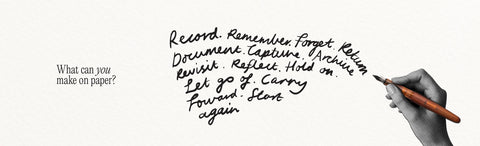 What can you
make on paper?
Record. Remember. Forget. Return
Document. Capture. Archive
Revisit. Reflect. Hold on.
Let go of. Carry
Forward. Start
again